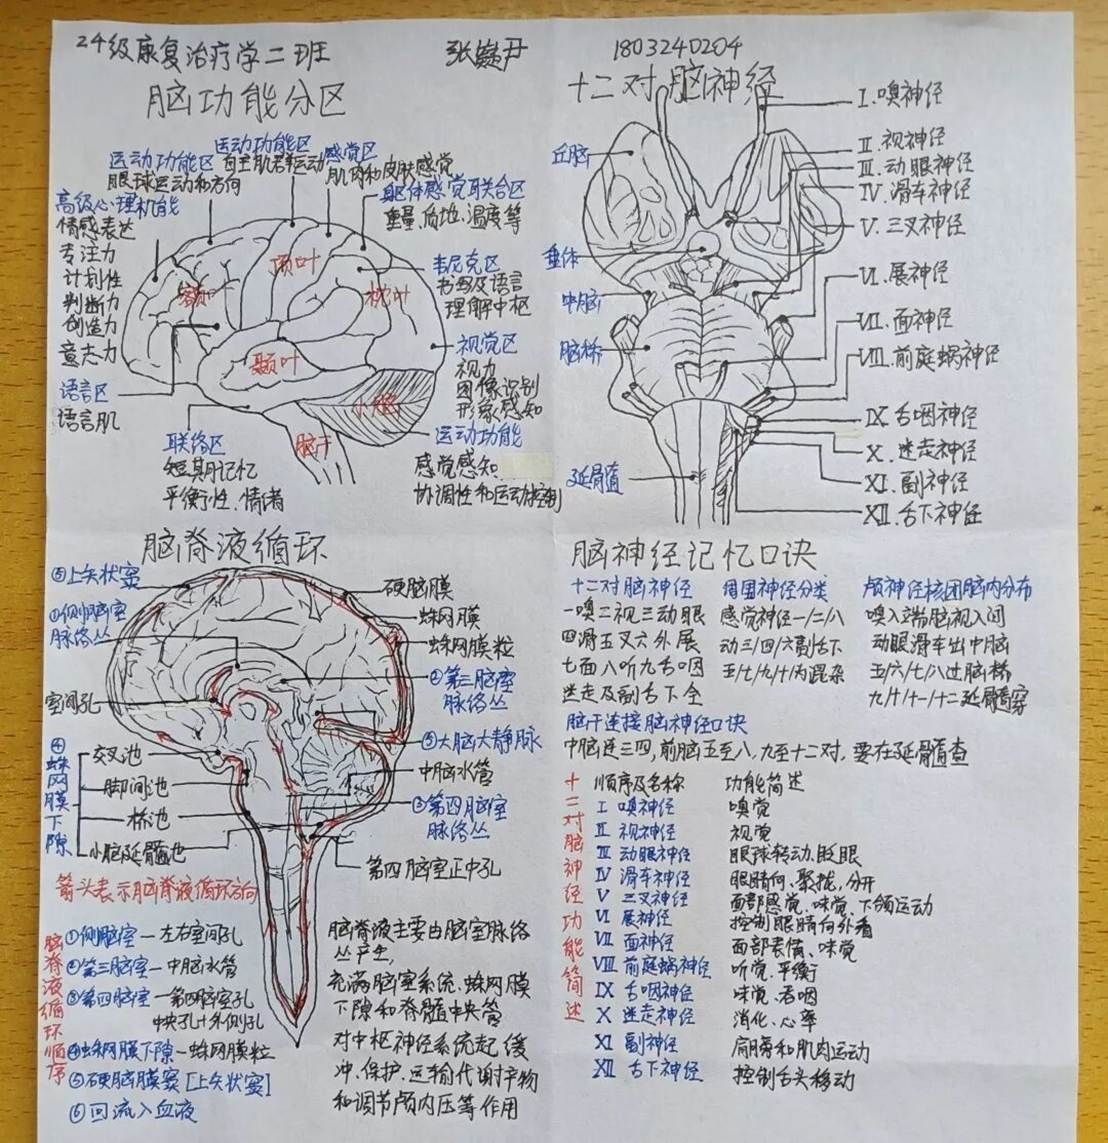 24级康复治疗学二班
张巍丹
1803240204
脑功能分区
运动功能区
眼球运动和方向
运动功能区
自主肌群运动
感觉区
肌肉和皮肤感觉
躯体感觉联合区
重量.质地.温度等
高级心理机能
情感表达
专注力
计划性
判断力
创造力
意志力
语言区
语言肌
额叶
顶叶
枕叶
颞叶
小脑
脑干
韦尼克区
书写及语言
理解中枢
视觉区
视力
图像识别
形象感知
运动功能
感觉感知
协调性和运动控制
联络区
短期记忆
平衡性.情绪
十二对脑神经
丘脑
垂体
中脑
脑桥
延骨髓
I.嗅神经
II.视神经
III.动眼神经
IV.滑车神经
V.三叉神经
VI.展神经
VII.面神经
VIII.前庭蜗神经
IX.舌咽神经
X.迷走神经
XI.副神经
XII.舌下神经
脑脊液循环
⑤上矢状窦
①侧脑室
脉络丛
室间孔
④蛛网膜下隙
交叉池
脚间池
桥池
小脑延髓池
硬脑膜
蛛网膜
蛛网膜粒
②第三脑室
脉络丛
⑤大脑大静脉
中脑水管
③第四脑室
脉络丛
第四脑室正中孔
箭头表示脑脊液循环方向
脑脊液循环顺序
①侧脑室—左右室间孔
②第三脑室—中脑水管
③第四脑室—第四脑室孔
中央孔+外侧孔
④蛛网膜下隙—蛛网膜粒
⑤硬脑膜窦[上矢状窦]
⑥回流入血液
脑脊液主要由脑室脉络
丛产生,
充满脑室系统.蛛网膜
下隙和脊髓中央管
对中枢神经系统起缓
冲.保护.运输代谢产物
和调节颅内压等作用
脑神经记忆口诀
十二对脑神经
一嗅二视三动眼
四滑五叉六外展
七面八听九舌咽
迷走及副舌下全
周围神经分类
感觉神经一/二/八
动三/四/六副舌下
五/七/九/十内混杂
颅神经核团脑内分布
嗅入端脑视入间
动眼滑车出中脑
五/六/七/八过脑桥
九/十/十一/十二延髓穿
脑干连接脑神经口诀
中脑连三四,前脑五至八,九至十二对,要在延骨髓查
十二对脑神经功能简述
顺序及名称 功能简述
I 嗅神经 嗅觉
II 视神经 视觉
III 动眼神经 眼球转动.眨眼
IV 滑车神经 眼睛向.聚拢,分开
V 三叉神经 面部感觉.味觉.下颌运动
VI 展神经 控制眼睛向外看
VII 面神经 面部表情、味觉
VIII 前庭蜗神经 听觉.平衡
IX 舌咽神经 味觉.吞咽
X 迷走神经 消化、心率
XI 副神经 肩膀和肌肉运动
XII 舌下神经 控制舌头移动